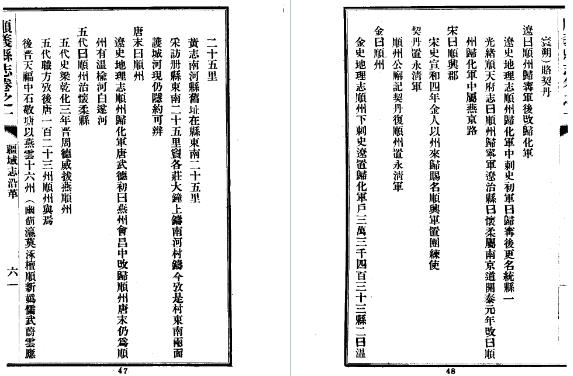 二十五里
黃志南河縣舊址在縣東南二十五里
采訪册縣東南二十五里賈各莊大鐘上鑄南河村鑄今攷是村東南兩面
護城河現仍隱約可辨
唐末曰順州
遼史地理志順州歸化軍唐武德初曰燕州會昌中改歸順州唐末仍爲順
州有溫榆河白遂河
五代曰順州治懷柔縣
五代史梁乾化三年晋周德威拔燕順州
五代職方攷後唐一百二十三州順州與焉
後晋天福中石敬瑭以燕雲十六州（幽薊瀛莫涿檀順新嬀儒武蔚雲應
順義縣志卷之一 疆域志沿革 六
47
寰朔）賂契丹
遼曰順州歸寧軍後改歸化軍
遼史地理志順州歸化軍中刺史初軍曰歸寧後更名統縣一
光緒順天府志曰順州歸寧軍遼治縣曰懷柔屬南京道開泰元年改曰順
州歸化軍中屬燕京路
宋曰順興郡
宋史宣和四年金人以州來歸賜名順興軍置團練使
契丹置永清軍
順州公廨記契丹復順州置永清軍
金曰順州
金史地理志順州下刺史遼置歸化軍戶三萬三千四百三十三縣二曰溫
48